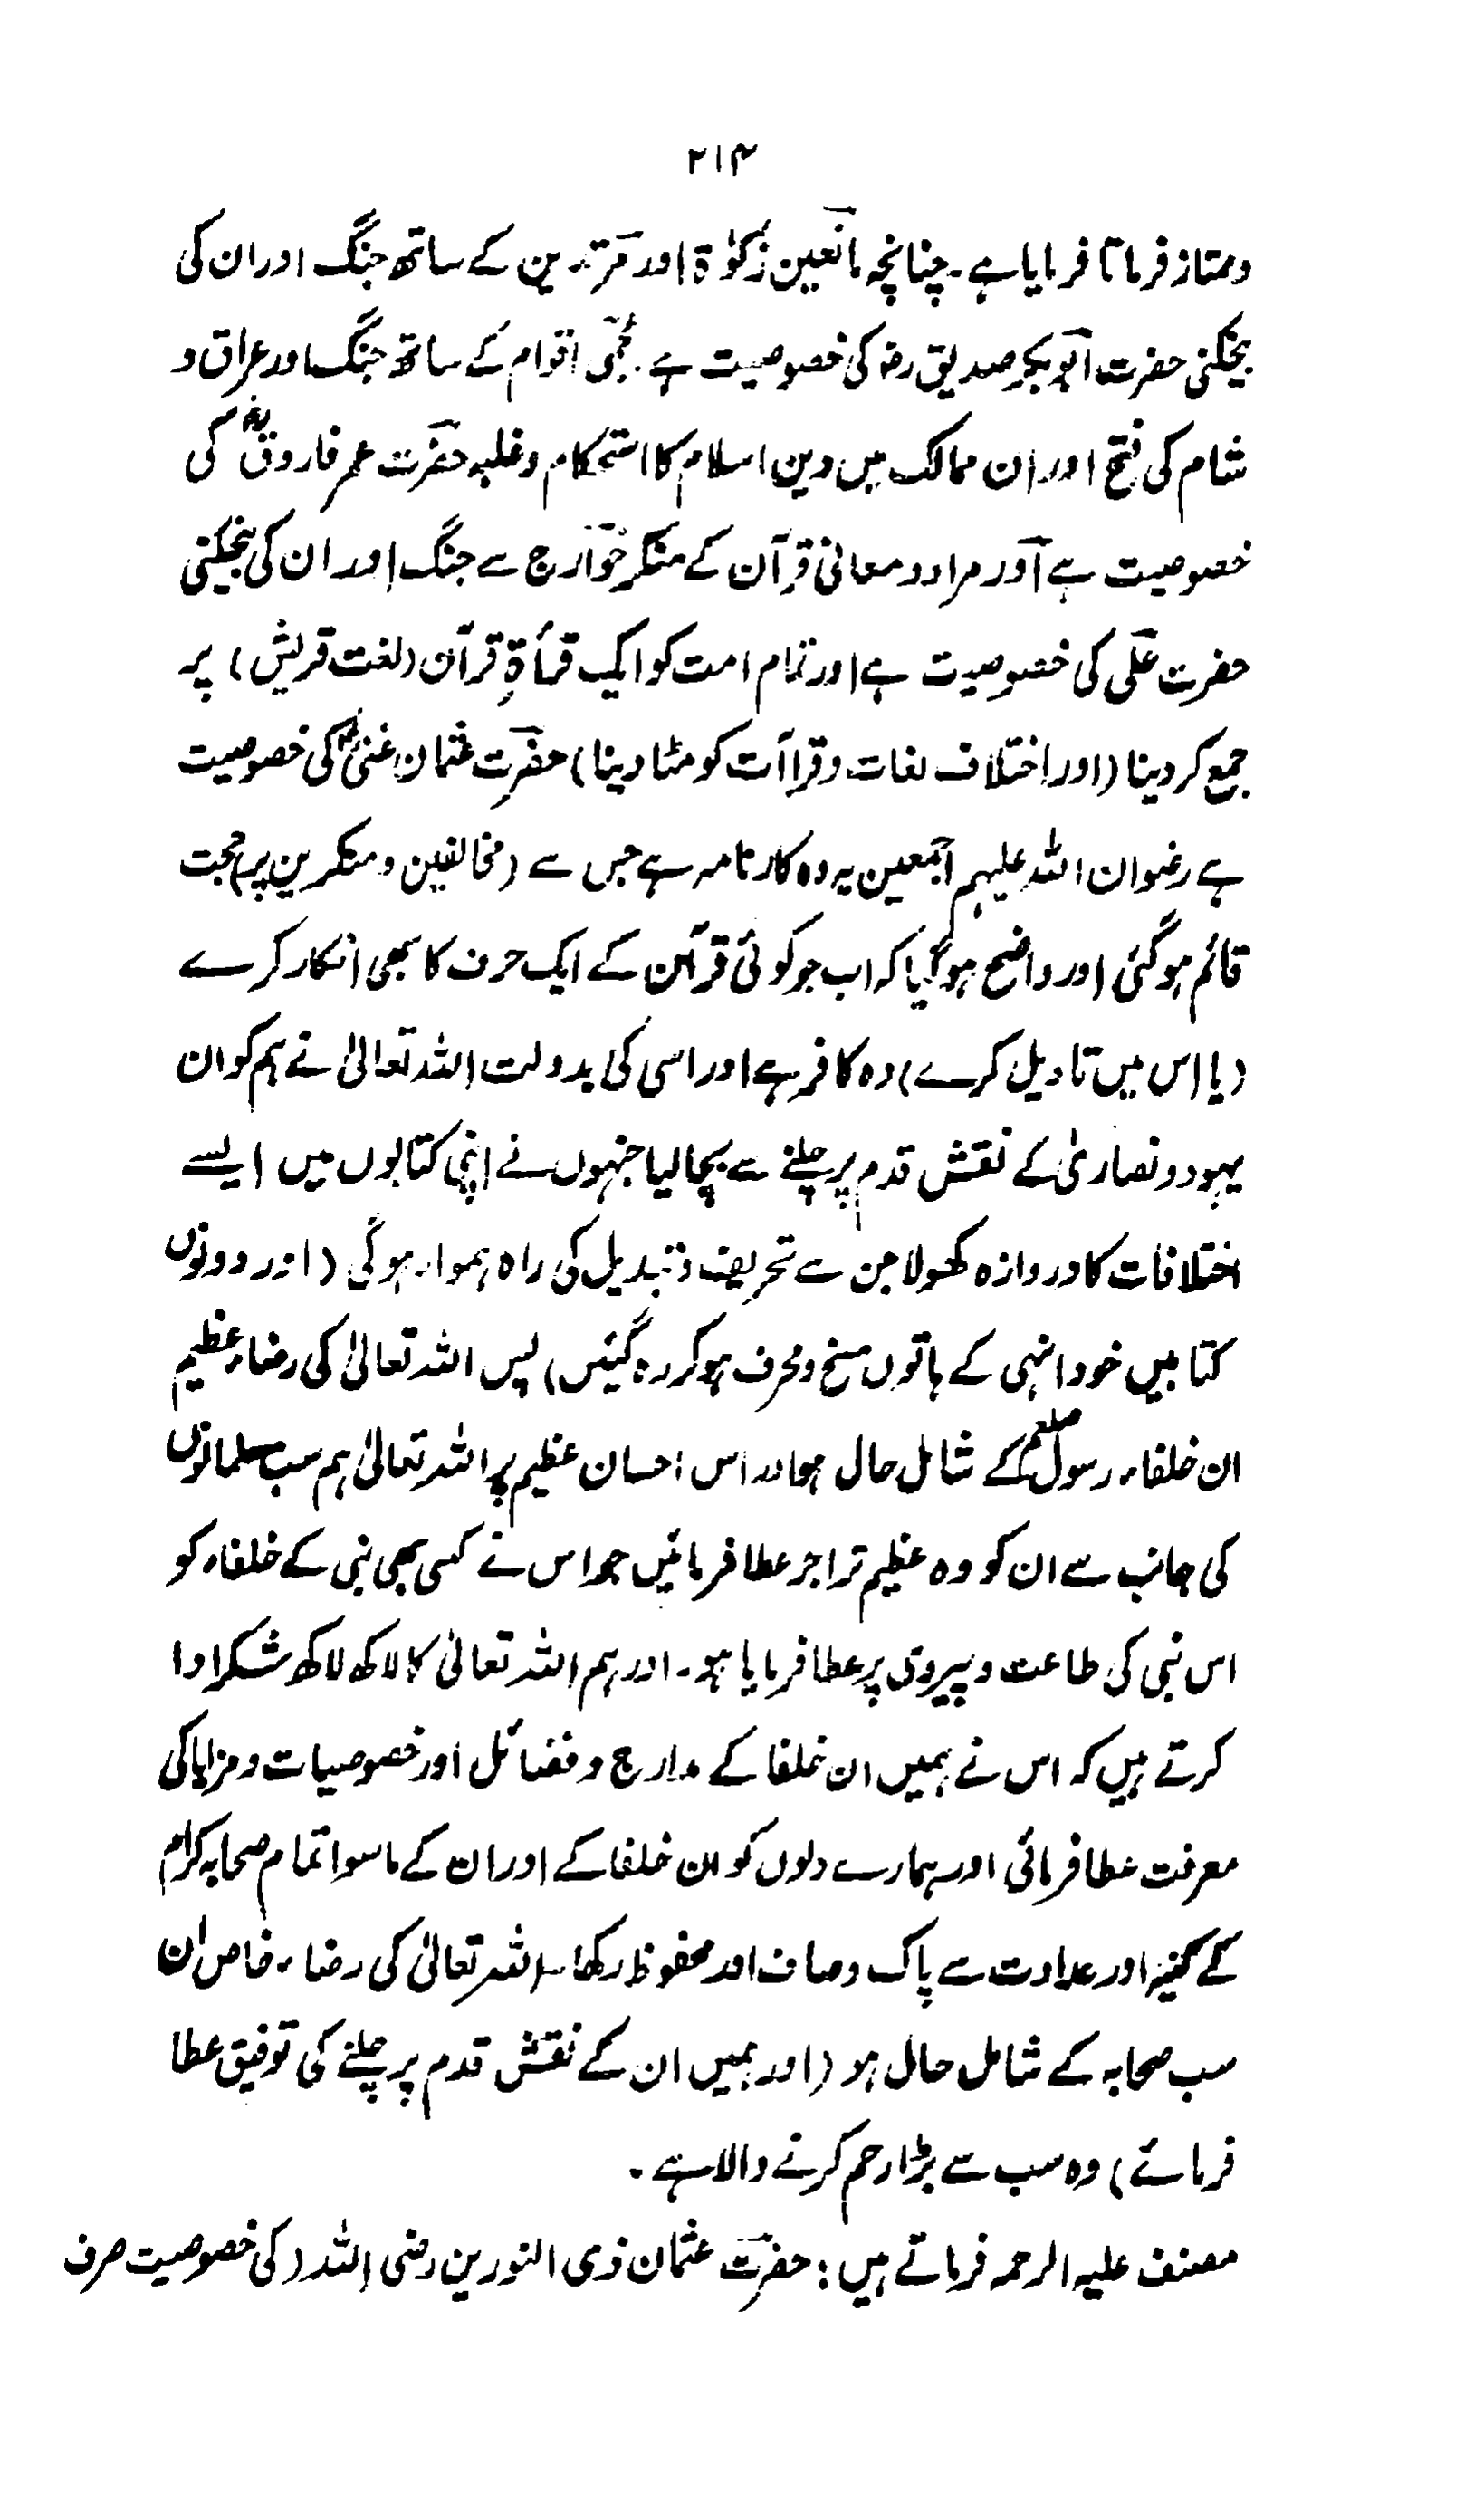 ۲۱۴
وممتاز فرمایا فرمایا ہے۔ چنانچہ مانعین زکوٰۃ اور مرتدین کے ساتھ جنگ اور ان کی
بیخکنی حضرت ابو بکر صدیق رضؓ کی خصوصیت ہے۔ عجمی اقوام کے ساتھ جنگ اور عراق و
شام کی فتح اور ان ممالک میں دین اسلام کا استحکام وغلبہ حضرت عمر فاروقؓ کی
خصوصیت ہے اور مراد ومعانی قرآن کے منکر خوارج سے جنگ اور ان کی بیخکنی
حضرت علی کی خصوصیت ہے اور تمام امت کو ایک قرأۃِ قرآن (لغت قریش) پر
جمع کر دینا (اور اختلاف لغات وقراآت کو مٹا دینا) حضرت عثمان غنیؓ کی خصوصیت
ہے رضوان اللہ علیہم اجمعین یہ وہ کارنامہ ہے جس سے (مخالفین و منکرین پر) حجت
قائم ہوگئی اور واضح ہوگیا کہ اب جو کوئی قرآن کے ایک حرف کا بھی انکار کرے
(یا اس میں تاویل کرے) وہ کافر ہے اور اسی کی بدولت اللہ تعالیٰ نے ہم کو ان
یہود ونصاریٰ کے نقش قدم پر چلنے سے بچا لیا جنہوں نے اپنی کتابوں میں ایسے
اختلافات کا دروازہ کھولا جن سے تحریف وتبدیل کی راہ ہموار ہوگی (اور دونوں
کتابیں خود انہی کے ہاتوں مسخ ومحرف ہو کر رہ گئیں) پس اللہ تعالیٰ کی رضاء عظیم
ان خلفاء رسول صلعم کے شامل حال ہو اور اس احسان عظیم پر اللہ تعالیٰ ہم سب مسلمانوں
کی جانب سے ان کو وہ عظیم تر اجر عطا فرمائیں جو اس نے کسی بھی نبی کے خلفاء کو
اس نبی کی طاعت وپیروی پر عطا فرمایا ہو۔ اور ہم اللہ تعالیٰ کا لاکھ لاکھ شکر ادا
کرتے ہیں کہ اس نے ہمیں ان خلفا کے مدارج وفضائل اور خصوصیات ومزایا کی
معرفت عطا فرمائی اور ہمارے دلوں کو ان خلفا کے اور ان کے ماسوا تمام صحابہ کرامؓ
کے کینہ اور عداوت سے پاک وصاف اور محفوظ رکھا۔ اللہ تعالیٰ کی رضاء خاص ان
سب صحابہ کے شامل حال ہو (اور ہمیں ان کے نقش قدم پر چلنے کی توفیق عطا
فرمائے) وہ سب سے بڑا رحم کرنے والا ہے۔
مصنف علیہ الرحمہ فرماتے ہیں: حضرت عثمان ذی النورین رضی اللہ (کی خصوصیت صرف